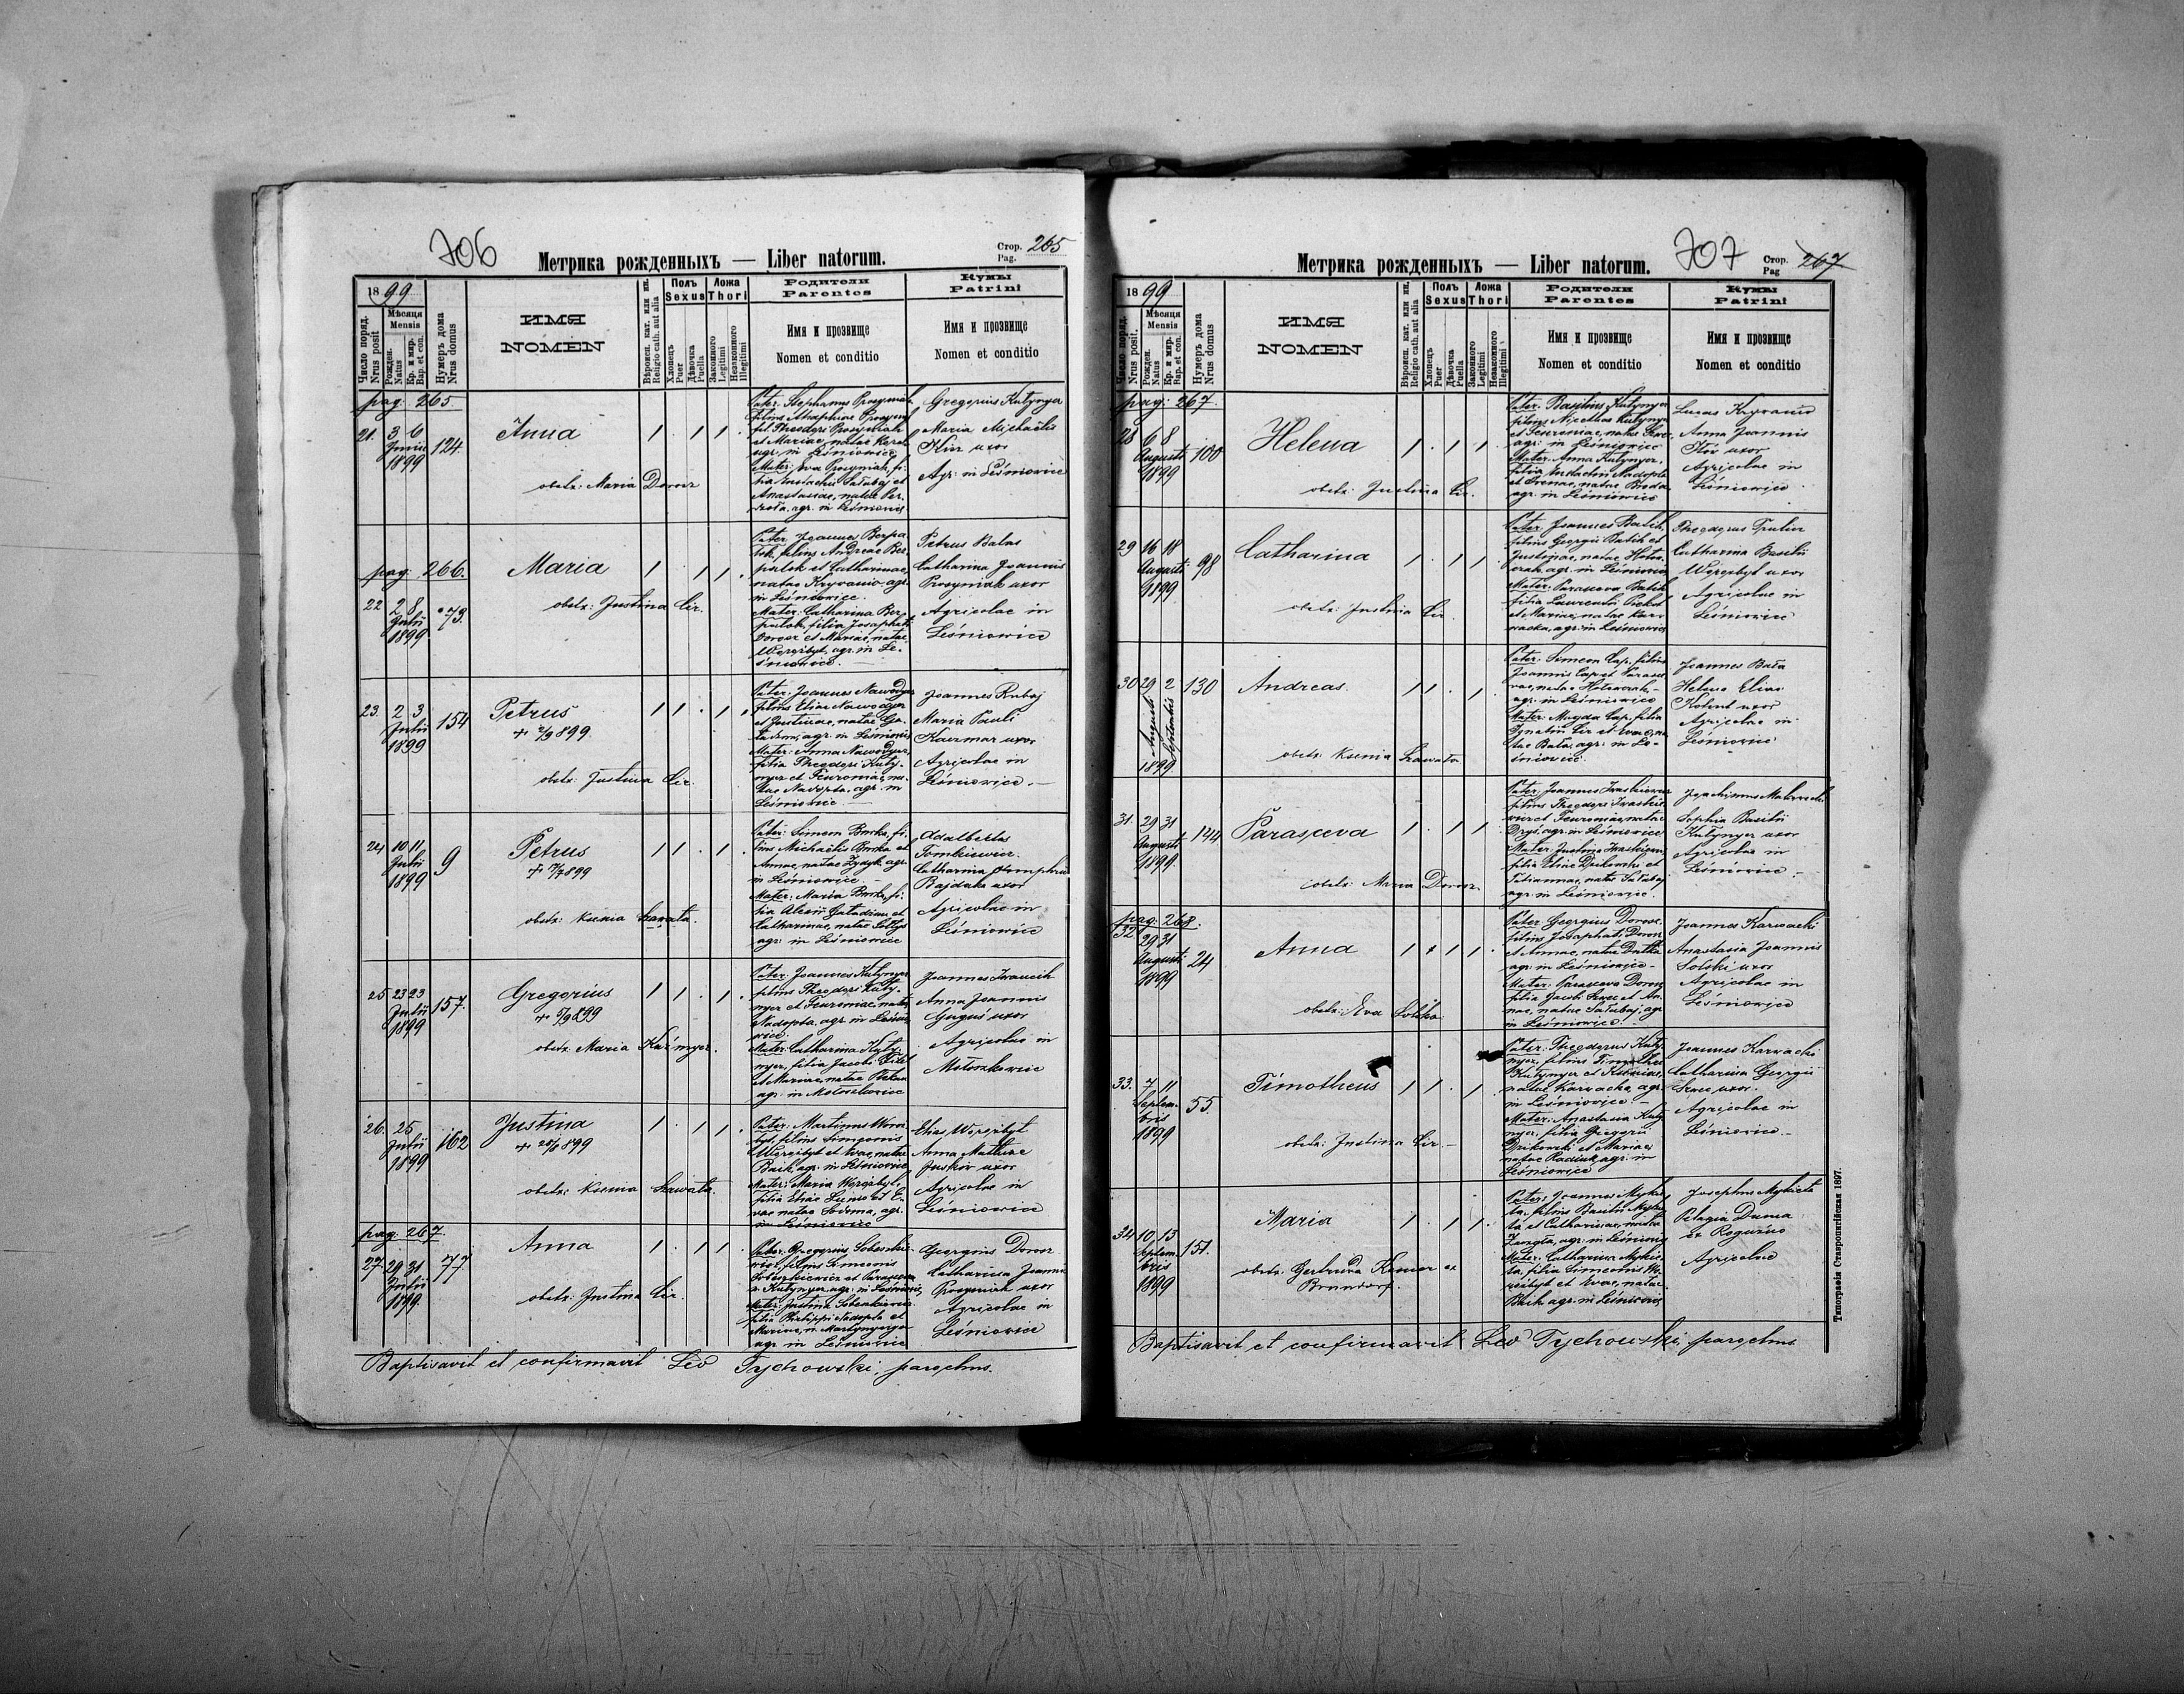 706
Метрика рожденныхъ — Liber natorum.
Стор. 265
Pag.
1899
Число поряд.
Nrus posit
Мѣсяця
Mensis
Рожден.
Natus
Кр. и мир.
Bap. et con.
Нумеръ дома
Nrus domus
ИМЯ
NOMEN
Вѣроисп. кат. или ин.
Religio cath. aut alia
Полъ
Sexus
Хлопецъ
Puer
Дѣвочка
Puella
Ложа
Thori
Законного
Legitimi
Незаконного
Illegitimi
Родители
Parentes
Имя и прозвище
Nomen et conditio
Кумы
Patrini
Имя и прозвище
Nomen et conditio
pag: 265
21. 3 6
Junii
1899
124.
Anna
obstr: Maria Dorosz
Pater: Stephanus Prosymiak
fil. Theodori Prosymiak
agr. in Leśniowice
Mater: Eva Prosymiak, fi-
lia Eustachii Sałabaj et
Anastasiae, natae
agr. in Leśniowice
Gregorius Kutynyer
Maria Michaelis
Kivr uxor
Agr. in Leśniowice
pag: 266.
22 2 8
Julii
1899
73.
Maria
obstr: Justina Cir.
Pater: Joannes Berpa
lok, filius Andreae Ber
palok et Catharinae,
natae Kryvanio agr.
in Leśniowice.
Mater: Catharina Ber
palok, filia Josaphati
Dorosz et Mariae, natae
Werezbyt, agr. in Le-
śniowice.
Petrus Balas
Catharina Joannis
Prosymiak uxor
Agricolae in
Leśniowice
23. 2 3
Julii
1899
154
Petrus
+ 2/9 899.
obstr: Justina Cir
Pater: Joannes Nawodyer
filius Eliae Nawodyer
et Justinae, natae Ga-
agr. in Leśniowice
Mater: Anna Nawodyer,
filia Theodori Kuty-
nyer et Feuroniae, na-
tae Nadopta, agr. in
Leśniowice
Joannes Rubaj
Maria Pauli
Kaczmar uxor
Agricolae in
Leśniowice.
24 10 11
Julii
1899
9
Petrus
obstr: Ksenia Szawała.
Pater: Simeon Burka, fi-
lius Michaelis Burka et
Annae, natae Zyzyk agr.
in Leśniowice.
Mater: Maria Burka, fi-
lia Alexii
Catharinae, natae Sołtys
agr. in Leśniowice
Adalbertus
Tomkiewicz.
Catharina
Bajdala uxor
Agricolae in
Leśniowice
25 23 23
Julii
1899
157.
Gregorius
+ 5/9 899
obstr: Maria
Pater: Joannes Kutynyer
filius Theodori Kuty-
nyer et Feuroniae, natae
Nadopta, agr. in Leśnio
wice
Mater: Catharina Kuty-
nyer, filia Jacobi
et Mariae, natae
agr. in Mołoszkowice
Joannes Iwancik
Anna Joannis
uxor
Agricolae in
Mołoszkowice
26. 25
Julii
1899
162
Justina
obstr: Ksenia Szawała.
Pater: Martinus Werez
byt, filius Simeonis
Werezbyt et Evae, natae
Baik, agr. in Leśniowice
Mater: Maria Werezbyt,
filia Eliae
vae natae Sodoma, agr.
in Leśniowice
Elias Werezbyt
Anna Mathiae
Juskiv uxor
Agricolae in
Leśniowice
pag: 267
27. 29 31
Julii
1899.
77
Anna
obstr: Justina Cir.
Pater: Gregorius Sobeszkie-
wicz, filius Simeonis
Sobeszkiewicz et Parascevae
n. Kutynyer, agr. in Leśniowice,
Mater: Justina Sobeszkiewicz
filia Philippi Nadopta et
Mariae, n.
agr. in Leśniowice
Georgius Dorosz
Catharina Joannis
Prosymiak uxor
Agricolae in
Leśniowice
Baptisavit et confirmavit Leo Tychowski, parochus.
707
Метрика рожденныхъ — Liber natorum.
Стор. 267
Pag
1899
Число поряд.
Nrus posit.
Мѣсяця
Mensis
Рожден.
Natus
Кр. и мир.
Bap. et con.
Нумеръ дома
Nrus domus
ИМЯ
NOMEN
Вѣроисп. кат. или ин.
Religio cath. aut alia
Полъ
Sexus
Хлопецъ
Puer
Дѣвочка
Puella
Ложа
Thori
Законного
Legitimi
Незаконного
Illegitimi
Родители
Parentes
Имя и прозвище
Nomen et conditio
Кумы
Patrini
Имя и прозвище
Nomen et conditio
pag: 267.
28 6 8
Augusti
1899
100
Helena
obstr: Justina Cir.
Pater: Basilius Kutynyer
filius Nicetae Kutynyer
et Feuroniae, natae
agr. in Leśniowice
Mater: Anna Kutynyer,
filia Eustachii Nadopta
et Irenae, natae Broda
agr. in Leśniowice
Lucas Kryvanio
Anna Joannis
Kiv uxor
Agricolae in
Leśniowice
29 16 18
Augusti
1899
98
Catharina
obstr: Justina Cir
Pater: Joannes Batik,
filius Georgii Batik et
Justinae, natae
agr. in Leśniowice
Mater: Parasceva Batik
filia Laurentii
et Mariae, natae Karw
wacka, agr. in Leśniowice
Theodorus
Catharina Basilii
Werezbyt uxor
Agricolae in
Leśniowice
30 29 2
Augusti Septembris
1899
130
Andreas.
obstr: Ksenia Szawała
Pater: Simeon Cap, filius
Joannis Cap et Parasce
vae, natae
agr. in Leśniowice
Mater: Magda Cap, filia
Ignatii Cir et Evae, na
tae Bała, agr. in Le-
śniowice
Joannes Bała
Helena Eliae
uxor
Agricolae in
Leśniowice
31. 29 31
Augusti
1899.
144
Parasceva
obstr: Maria Dorosz.
Pater: Joannes Iwaskiewicz
filius Theodori Iwaskie
wicz et Feuroniae, natae
Drys, agr. in Leśniowice
Mater: Justina Iwaskiewicz
filia Eliae et
Tatiannae, natae Sałabaj
agr. in Leśniowice.
Joachimus
Sophia Basilii
Kutynyer uxor
Agricolae in
Leśniowice.
pag: 268.
32 29 31
Augusti
1899
24
Anna
obstr: Eva
Pater: Georgius Dorosz
filius Josaphati Dorosz
et Annae, natae Dutka
agr. in Leśniowice
Mater: Parasceva Dorosz
filia Jacobi Szwec et An
nae, natae Sałabaj, agr
in Leśniowice.
Joannes Karwacki
Anastasia Joannis
Solski uxor
Agricolae in
Leśniowice
33. 7 11
Septem-
bris
1899
55.
Timotheus
obstr: Justina Cir.
Pater: Theodorus Kuty-
nyer, filius Timothei
Kutynyer et Kseniae,
natae Karwacka, agr
in Leśniowice
Mater: Anastasia Kuty
nyer, filia Gregorii
et Mariae
natae Radiuk, agr. in
Leśniowice
Joannes Karwacki
Catharina Georgii
Szwec uxor.
Agricolae in
Leśniowice.
34 10 13
Septem-
bris
1899
151.
Maria
obstr: Gertruda ex
Brundorf.
Pater: Joannes Mykie
ta, filius Basilii Mykie
ta et Catharinae, natae
agr. in Leśniowice
Mater: Catharina Mykie
ta, filia Simeonis We
rezbyt et Evae, natae
Baik agr. in Leśniowice
Josephus Mykieta
Pelagia Duma
ex Roguźno
Agricolae
Baptisavit et confirmavit Leo Tychowski, parochus
Типографія Ставропигійская 1897.